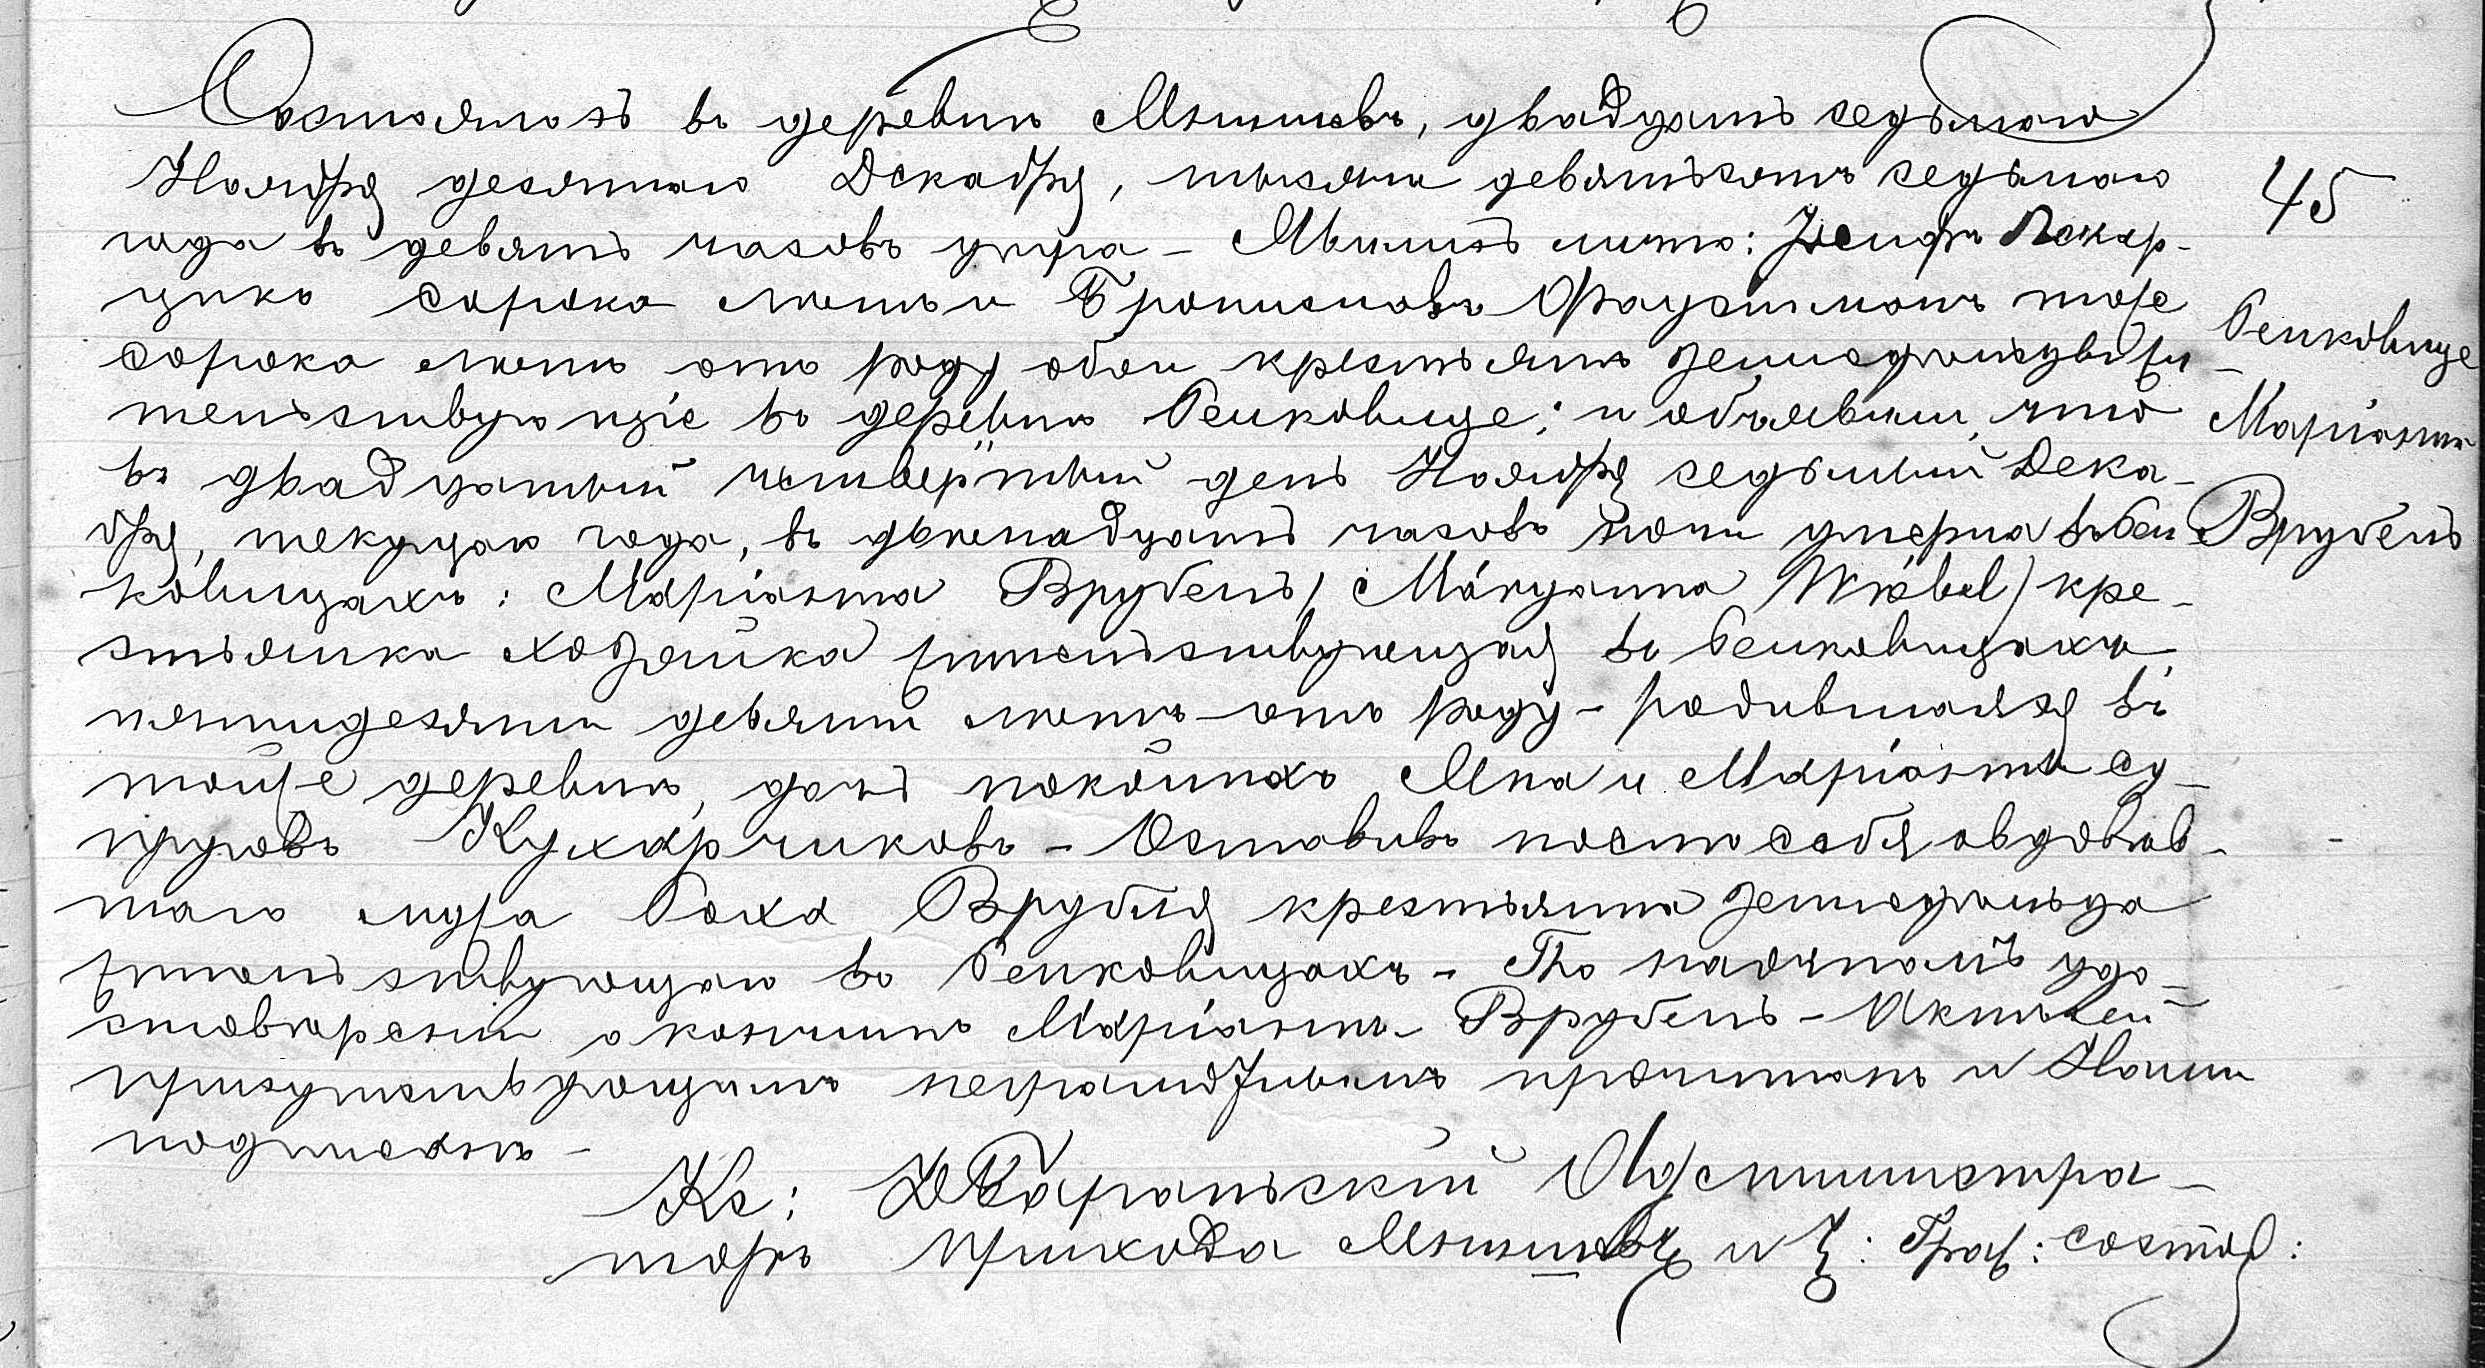 Состоялось въ деревни Мнишевъ, двадцать седьмого
Ноября десятаго Декабря, тысяча девятьсотъ седьмого
года въ девять часовъ утра – Явились лично: Іосифъ
сорока лѣтъ и Брониславъ тоже
сорока лѣтъ отъ роду обои крестьяне земледѣльцы жи
тельствующіе въ деревнѣ Бенковице; и объявили, что
въ двадцатый четвёртый день Ноября седьмый Дека-
бря, текущаго года, въ двенадцать часовъ ночи умерла въ Бен
ковицахъ: Маріанна Врубель / Maryanna Wróbel) кре-
стьянка хозяйка жительствующая въ Бенковицахъ,
пятидесяти девяти лѣтъ отъ роду – родившаяся въ
тойже деревни, дочь покойныхъ Яна и Маріанны су-
пруговъ Кухарчиковъ – Оставивъ после себя овдовѣв-
шаго мужа Роха Врубля крестьянина земледѣльца
жительствующаго въ Бенковицахъ – По наочномъ удо-
стоверении о кончинѣ Маріанны Врубель – Актъ сей
присутствующимъ неграмотнымъ прочитанъ и Нами
подписанъ –
Кс: Администра-
торъ прихода Мнишевъ и Ч: Граж: состоя:
45
Бенковице
Маріанна
Врубель